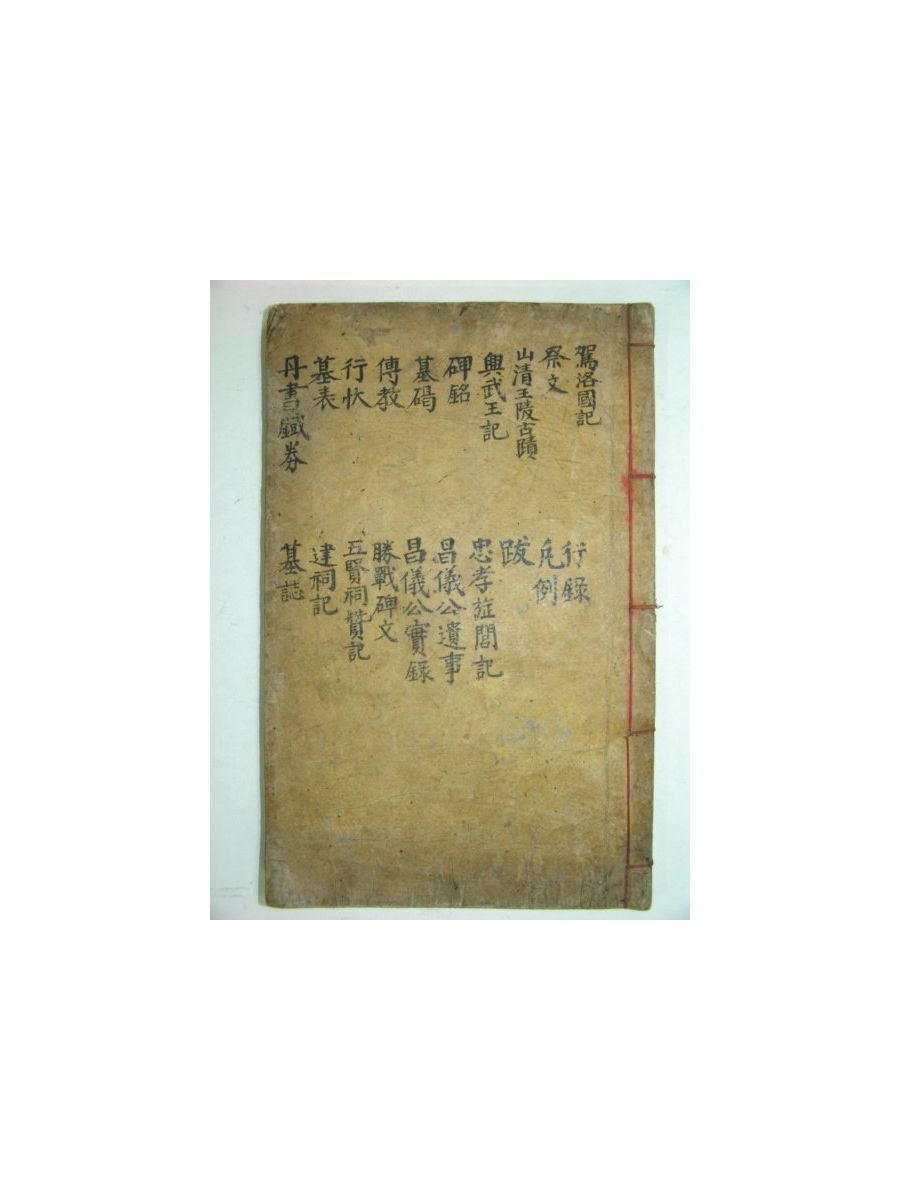 駕洛國記
祭文
山淸王陵古蹟
興武王記
碑銘
墓碣
傳教
行狀
墓表
丹書鐵券
行錄
凡例
跋
忠孝旌閭記
昌儀公遺事
昌儀公實錄
勝戰碑文
五賢祠贊記
建祠記
墓誌